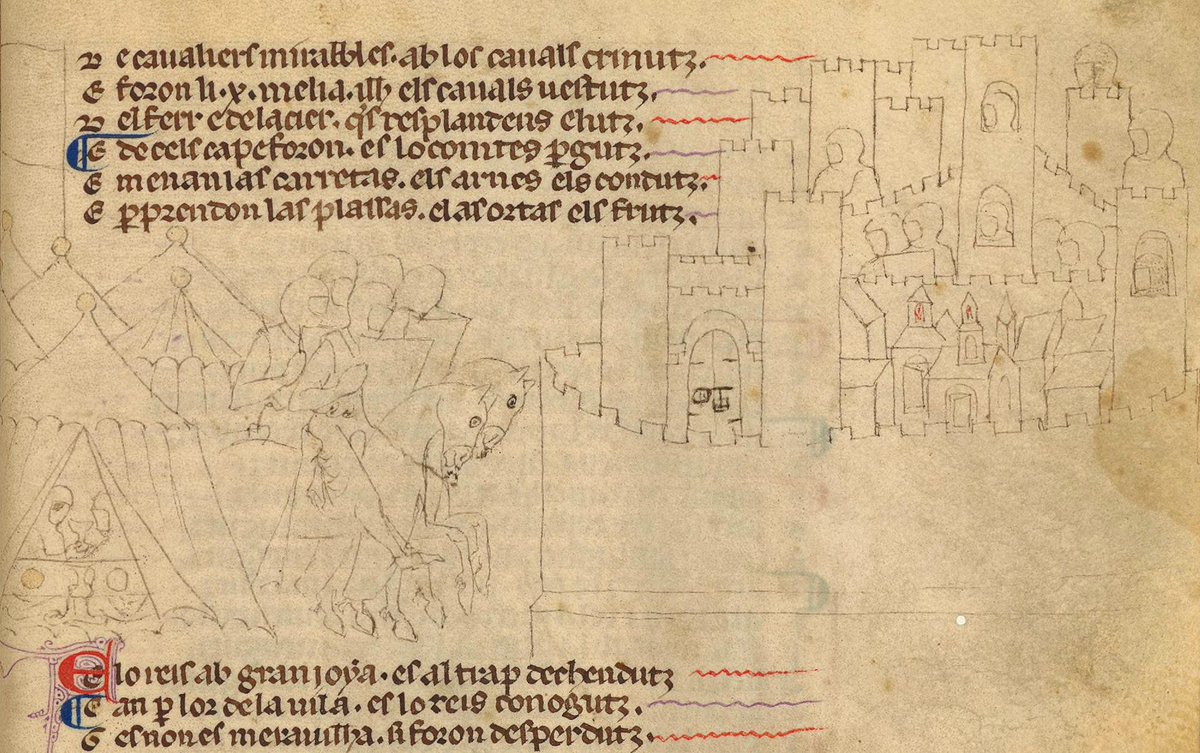 D e caualiers mirables. ab los cauals crinutz.
E foron li.x. melia. els cauals uestutz.
D el ferr e del acier. q̉s resplandens e lutz.
E de cels cap e foron. es lo comtes ꝑgutz.
E menan las carretas. els arnes els condutz.
E ꝑprendon las plassas. e las ortas els frutz.
E lo reis ab gran ioya. es al trap dechendutz
E an ꝑ lor de la uila. es lo reis conogutz.
G es non es merauilha. si foron desperdutz.